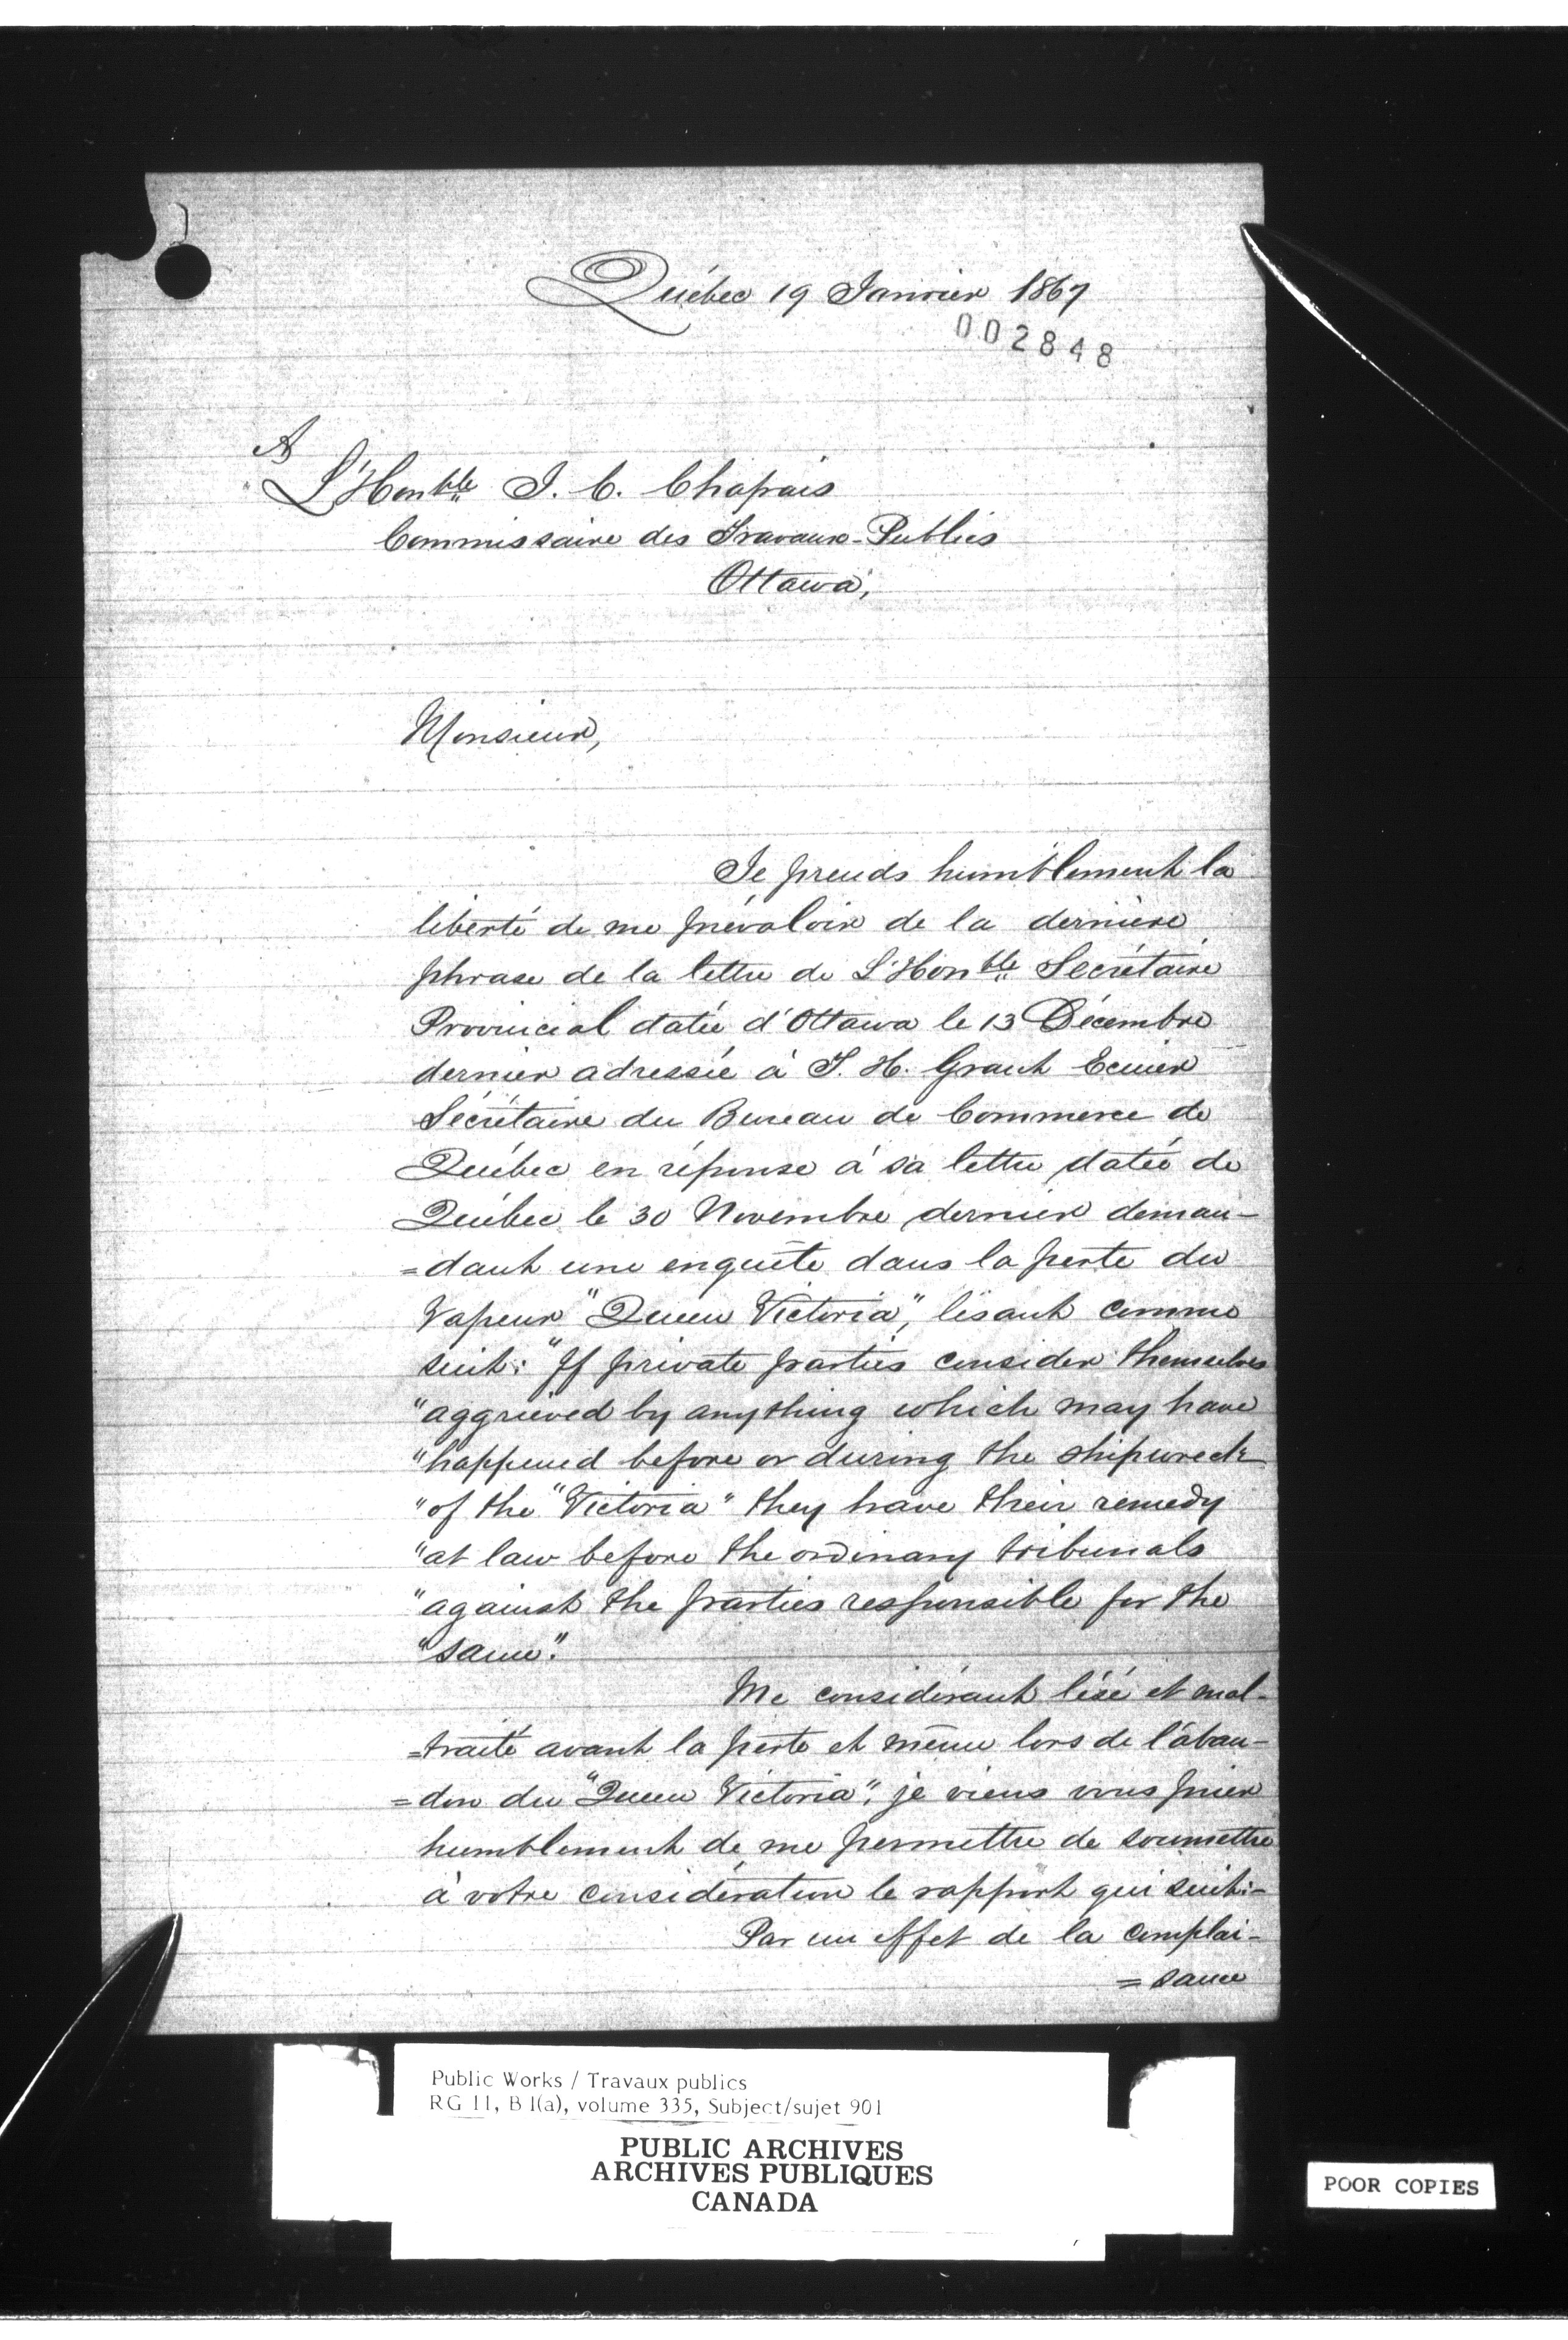 Québec 19 Janvier 1867
002848
A
L'Honble J. C. Chapais
Commissaire des Travaux-Publics
Ottawa,
Monsieur,
Je prends humblement la
liberté de me prévaloir de la dernière
phrase de la lettre de L'Honble Secrétaire
Provincial datée d'Ottawa le 13 Décembre
dernier adressée à T. H. Grant Ecuier
Sécrétaire du Bureau de Commerce de
Québec en réponse à sa lettre datée de
Québec le 30 Novembre dernier deman-
=dant une enquête dans la perte du
Vapeur "Queen Victoria", lisant comme
suit: "If private parties consider themselves
"aggrieved by anything which may have
"happened before or during the shipwreck
"of the "Victoria" they have their remedy
"at law before the ordinary tribunals
"against the parties responsible for the
"same".
Me considérant lésé et mal-
=traité avant la perte et même lors de l'aban-
=don du "Queen Victoria", je viens vous prier
humblement de me permettre de soumettre
à votre considération le rapport qui suit:-
Par un effet de la complai-
=sance
Public Works / Travaux publics
RG 11, B 1(a), volume 335, Subject/sujet 901
PUBLIC ARCHIVES
ARCHIVES PUBLIQUES
CANADA
POOR COPIES